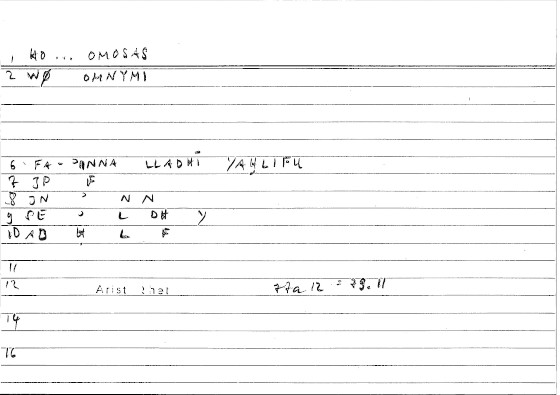 1 HO ... OMOSAS
2 WØ OMNYMI
6 FA- ʾINNA LLADHĪ YAḤLIFU
7 JP F
8 JN ʾ N N
9 SE ʾ L DH Y
10 AD H L F
11
12 Arist Rhet 77a 12 = 79.11
14
16